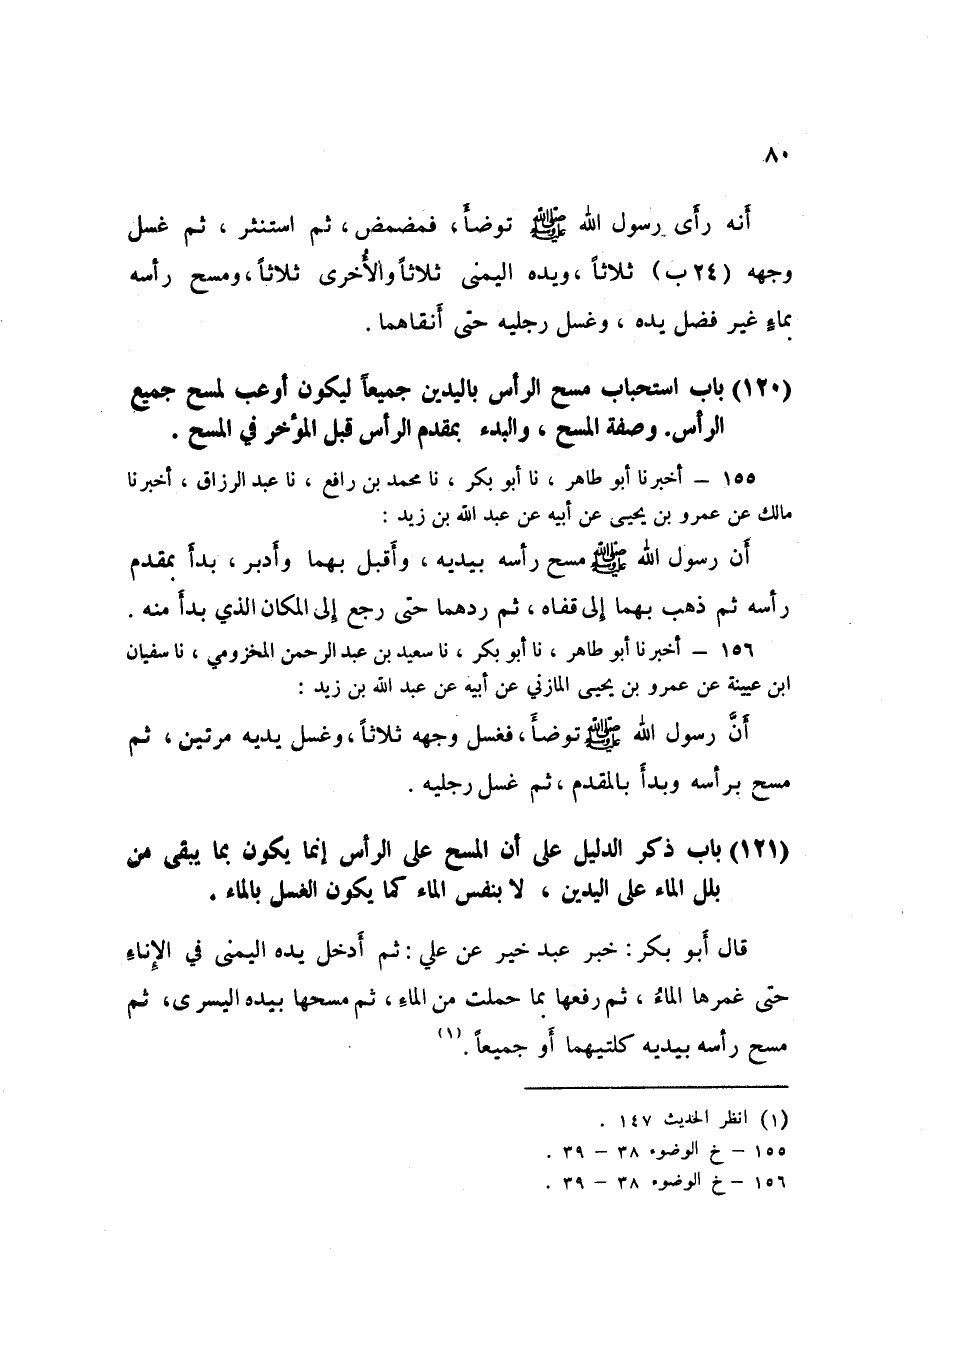 ٨٠
أنه رأى رسول الله ﷺ توضأ، فمضمض، ثم استنثر، ثم غسل
وجهه (٢٤ ب) ثلاثاً، ويده اليمنى ثلاثاً والأُخرى ثلاثاً، ومسح رأسه
بماءٍ غير فضل يده، وغسل رجليه حتى أنقاهما.
(١٢٠) باب استحباب مسح الرأس باليدين جميعاً ليكون أوعب لمسح جميع
الرأس. وصفة المسح، والبدء بمقدم الرأس قبل المؤخر في المسح.
١٥٥ – أخبرنا أبو طاهر، نا أبو بكر، نا محمد بن رافع، نا عبد الرزاق، أخبرنا
مالك عن عمرو بن يحيى عن أبيه عن عبد الله بن زيد:
أن رسول الله ﷺ مسح رأسه بيديه، وأقبل بهما وأدبر، بدأ بمقدم
رأسه ثم ذهب بهما إلى قفاه، ثم ردهما حتى رجع إلى المكان الذي بدأ منه.
١٥٦ – أخبرنا أبو طاهر، نا أبو بكر، نا سعيد بن عبد الرحمن المخزومي، نا سفيان
ابن عيينة عن عمرو بن يحيى المازني عن أبيه عن عبد الله بن زيد:
أنَّ رسول الله ﷺ توضأ، فغسل وجهه ثلاثاً، وغسل يديه مرتين، ثم
مسح برأسه وبدأ بالمقدم، ثم غسل رجليه.
(١٢١) باب ذكر الدليل على أن المسح على الرأس إنما يكون بما يبقى من
بلل الماء على اليدين، لا بنفس الماء كما يكون الغسل بالماء.
قال أبو بكر: خبر عبد خير عن علي: ثم أدخل يده اليمنى في الإناءِ
حتى غمرها الماءُ، ثم رفعها بما حملت من الماءِ، ثم مسحها بيده اليسرى، ثم
مسح رأسه بيديه كلتيهما أو جميعاً.(١)
(١) انظر الحديث ١٤٧.
١٥٥ – خ الوضوء ٣٨ – ٣٩.
١٥٦ – خ الوضوء ٣٨ – ٣٩.